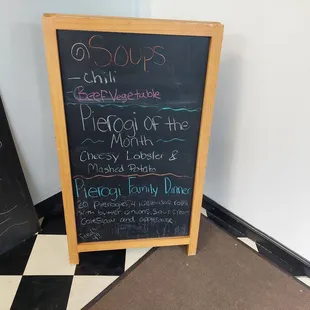 Soups
- Chili
- Beef Vegetable
Pierogi of the
Month
Cheesy Lobster &
Mashed Potato
Pierogi Family Dinner
20 Pierogies, 4
butter onions, Sour Cream
Coleslaw and